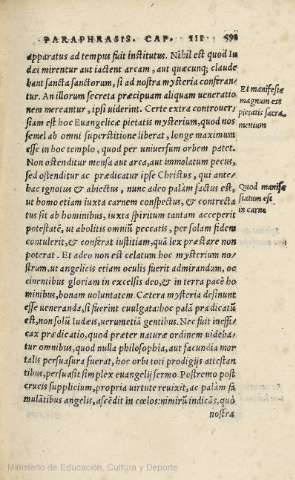 PARAPHRASIS. CAP. III 598
apparatus ad tempus fuit institutus. Nihil est quod Iu
dæi mirentur aut iactent arcam, aut quæcunq; claude
bant sancta sanctorum, si ad nostra mysteria conferan
tur. An illorum secreta præcipuam aliquam ueneratio
nem mereantur, ipsi uiderint. Certe extra controuer
siam est hoc Euangelicæ pietatis mysterium, quod nos
semel ab omni superstitione liberat, longe maximum
esse in hoc templo, quod per uniuersum orbem patet.
Non ostenditur mensa aut area, aut immolatum pecus,
sed ostenditur ac prædicatur ipse Christus, qui ante-
hac ignotus & abiectus, nunc adeo palàm factus est,
ut homo etiam iuxta carnem conspectus, & contrecta
tus sit ab hominibus, iuxta spiritum tantam acceperit
potestatē, ut abolitis omniū peccatis, per solam fidem
contulerit, & conferat iustitiam, quā lex præstare non
poterat. Et adeo non est celatum hoc mysterium no
strum, ut angelicis etiam oculis fuerit admirandum, oc
cinentibus gloriam in excelsis deo, & in terra pacē ho
minibus, bonam uoluntatem. Cætera mysteria desinunt
esse ueneranda, si fuerint euulgata: hoc palā prædicatū
est, non solū Iudæis, uerumetiā gentibus. Nec fuit ineffi
cax prædicatio, quod præter naturæ ordinem uideba-
tur omnibus, quod nulla philosophia, aut facundia mor
talis persuasura fuerat, hoc orbi toti prodigijs attestan
tibus, persuasit simplex euangelij sermo. Postremo post
crucis supplicium, propria uirtute reuixit, ac palàm fa
mulātibus angelis, ascēdit in cœlos: nimirū indicās, quò
nostra
Et manifeste
magnum est
pietatis sacra
mentum
Quod manife
statum est
in carne
Ministerio de Educación, Cultura y Deporte